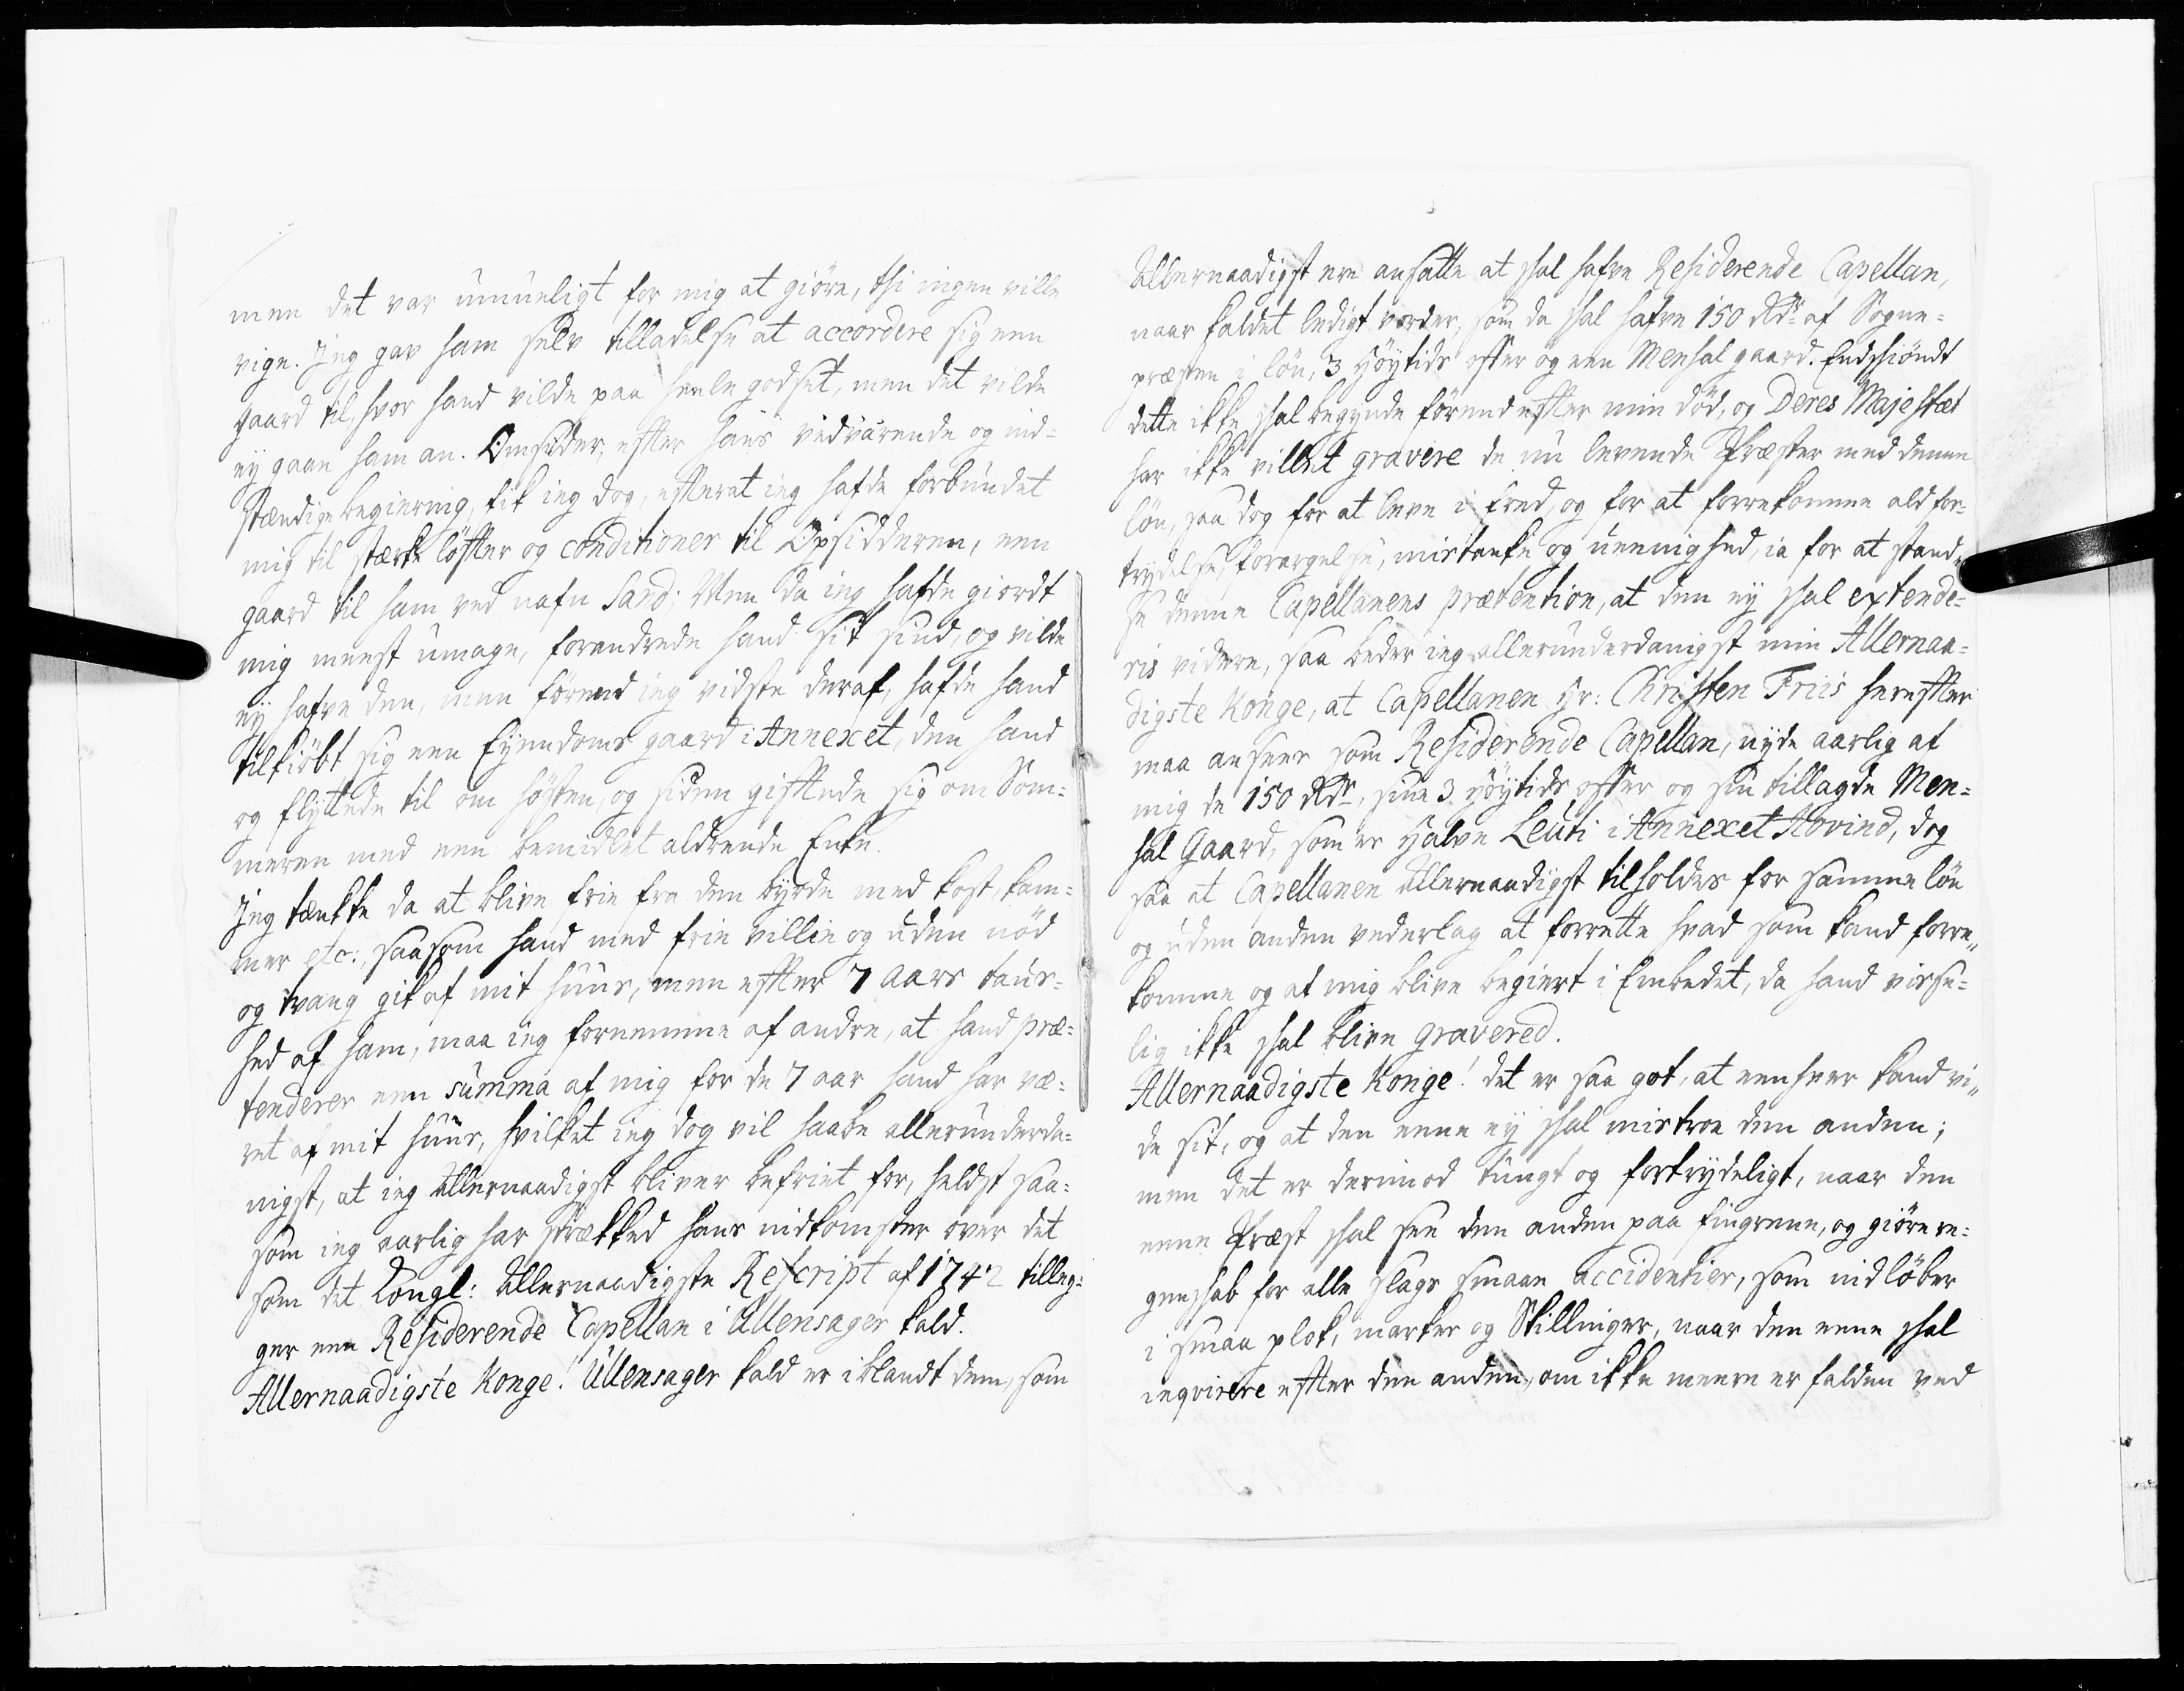 men det var umueligt for mig at giöre, thi ingen ville
vige. Jeg gav ham selv tilladelse at accordere sig een
gaard til, hvor hand vilde paa heele godset, men det vilde
ey gaae ham an. Omsider, efter hans vedvarende og ind-
stændige begiering, fik ieg dog, efterat ieg hafde forbundet
mig til stærke löfter og conditioner til Opsidderen, een
gaard til ham ved nafn Sand; Men da ieg hafde giordt
mig meest umage, forandrede hand sit sind, og vilde
ey hafve den, men förend ieg vidste deraf, hafde hand
tilkiöbt sig een Eyendoms gaard i Annexet, den hand
og flyttede til om hösten, og siden giftede sig om Som-
meren med een bemidlet aldrende Enke.
Jeg tænkte da at blive frie fra den byrde med kost, kam-
mer etc:, saasom hand med frie villie og uden nöd
og tvang gik af mit huus, men efter 7 aars taus-
hed af ham, maa ieg fornemme af andre, at hand præ-
tenderer een summa af mig for de 7 aar hand har væ-
ret af mit huus, hvilket ieg dog vil haabe allerunderda-
nigst, at ieg Allernaadigst bliver befriet for, heldst saa-
som ieg aarlig har strækked hans indkomster over det
som det Kongl: Allernaadigste Rescript af 1742 tilleg-
ger een Residerende Capellan i Ullensager kald.
Allernaadigste Konge! Ullensager kald er iblandt dem, som
Allernaadigst ere ansatte at skal hafve Residerende Capellan,
naar kaldet ledigt vorder, som da skal hafve 150 Rdr af Sogne-
præsten i lön, 3 Höytids offer og een Mensal gaard. Endskiöndt
dette ikke skal begynde förend efter min död, og Deres Majestæt
har ikke villet gravere de nu levende Præster med denne
lön, saa dog for at leve i fred, og for at forrekomme ald for-
trydelse, forargelse, mistanke og ueenighed, ia for at stand-
se denne Capellanens prætention, at den ey skal extende-
ris videre, saa beder ieg allerunderdanigst min Allernaa-
digste Konge, at Capellanen Hr: Christen Friis herefter
maa ansees som Residerende Capellan, nyde aarlig af
mig de 150 Rdr, sine 3 Höytids offer og sin tillagde Men-
sal Gaard, som er Halve Leuti i Annexet Hovind, dog
saa at Capellanen Allernaadigst tilholdes for samme lön
og uden anden vederlag at forrette hvad som kand forre„
komme og af mig blive begiert i Embedet, da hand visse-
lig ikke skal blive gravered.
Allernaadigste Konge! det er saa got, at eenhver kand vi„
de sit, og at den eene ey skal mistroe den anden;
men det er derimod tungt og fortrydeligt, naar den
eene Præst skal see den anden paa fingrene, og giöre re-
genskab for alle slags smaae accidentier, som indlöber
i smaa plok, marker og Skillinger, naar den eene skal
inqvirere efter den anden, om ikke meere er falden ved